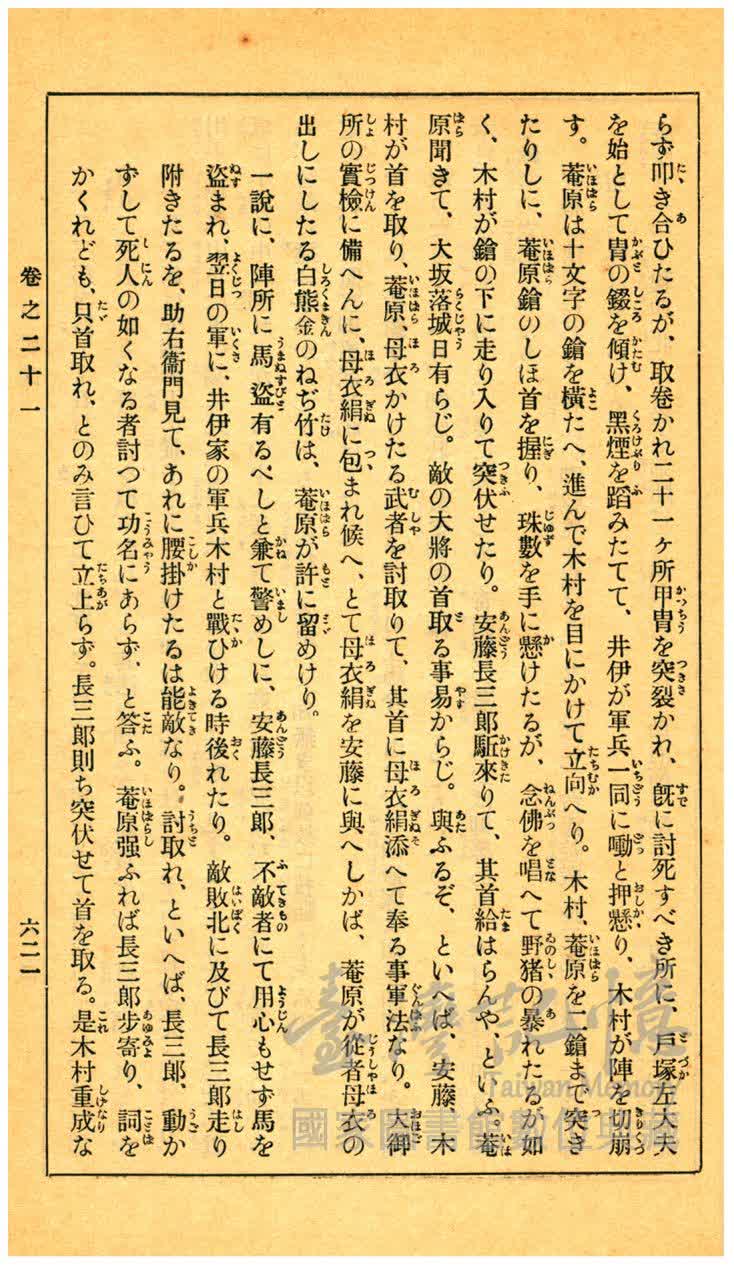 らず叩き合ひたるが、取卷かれ二十一ヶ所甲冑を突裂かれ、旣に討死すべき所に、戸塚左大夫
を始として冑の錣を傾け、黑煙を蹈みたてて、井伊が軍兵一同に噉と押懸り、木村が陣を切崩
す。菴原は十文字の鎗を橫たへ、進んで木村を目にかけて立向へり。木村、菴原を二鎗まで突き
たりしに、菴原鎗のしほ首を握り、珠數を手に懸けたるが、念佛を唱へて野猪の暴れたるが如
く、木村が鎗の下に走り入りて突伏せたり。安藤長三郎駈來りて、其首給はらんや、といふ。菴
原聞きて、大坂落城日有らじ。敵の大將の首取る事易からじ。與ふるぞ、といへば、安藤、木
村が首を取り、菴原、母衣かけたる武者を討取りて、其首に母衣絹添へて奉る事軍法なり。大御
所の實檢に備へんに、母衣絹に包まれ候へ、とて母衣絹を安藤に與へしかば、菴原が從者母衣の
出しにしたる白熊金のねぢ竹は、菴原が許に留めけり。
一說に、陣所に馬盜有るべしと兼て警めしに、安藤長三郎、不敵者にて用心もせず馬を
盜まれ、翌日の軍に、井伊家の軍兵木村と戰ひける時後れたり。敵敗北に及びて長三郎走り
附きたるを、助右衞門見て、あれに腰掛けたるは能敵なり。討取れ、といへば、長三郎、動か
ずして死人の如くなる者討つて功名にあらず、と答ふ。菴原强ふれば長三郎步寄り、詞を
かくれども、只首取れ、とのみ言ひて立上らず。長三郎則ち突伏せて首を取る。是木村重成な
卷之二十一
六二一
臺灣記憶
Taiwan Memory
國家圖書館數位典藏